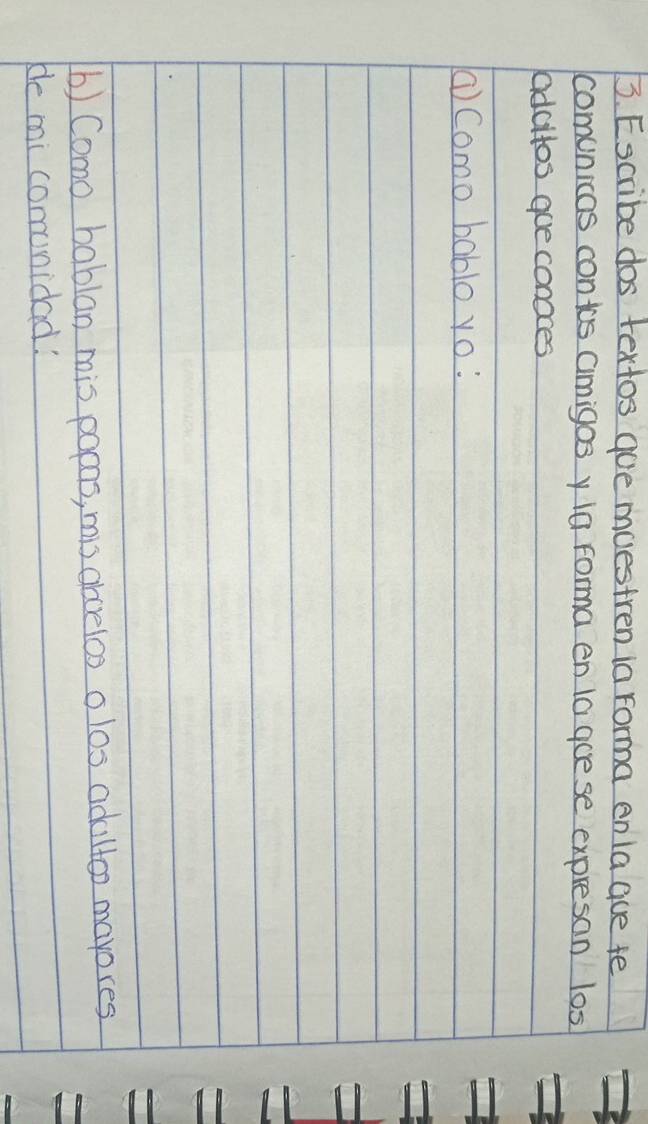 3. Escribe dos textos que muestren la forma en la que te
comunicas con tus amigos y la forma en la que se expresan los
adultos que conoces
a) Como hablo yo:
b) Como hablan mis papas, mis abuelos o los adultos mayores
de mi comunidad: